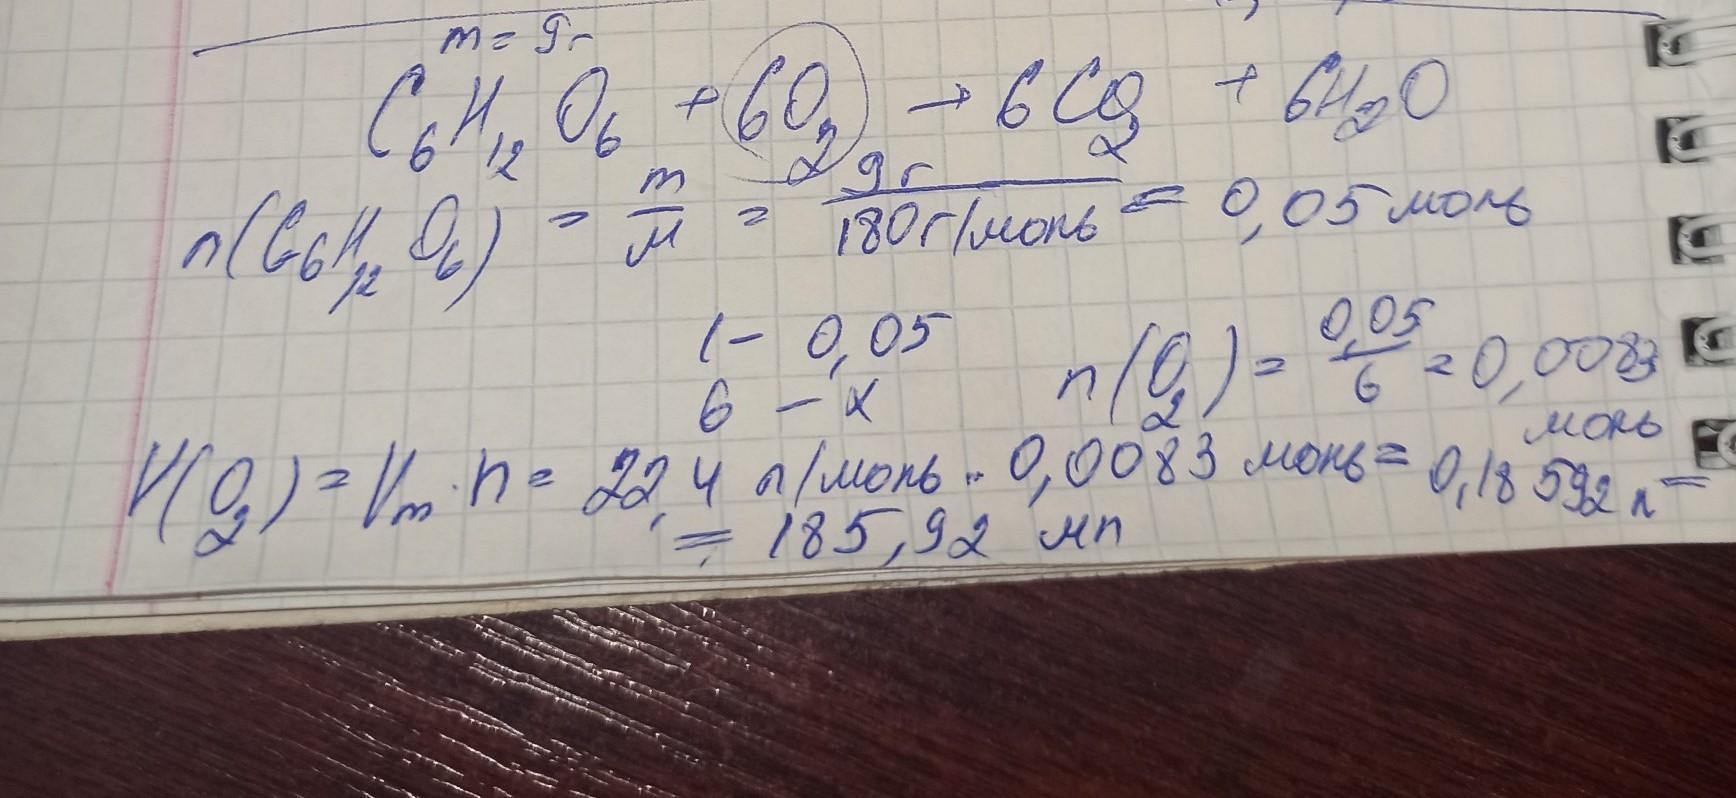 m = 9г
C₆H₁₂O₆ + 6O₂ → 6CO₂ + 6H₂O
n(C₆H₁₂O₆) = m/M = 9г/180г/моль = 0,05 моль
1 – 0,05
6 – x
n(O₂) = 0,05/6 = 0,0083 моль
V(O₂) = Vm · n = 22,4 л/моль · 0,0083 моль = 0,18592 л =
= 185,92 мл